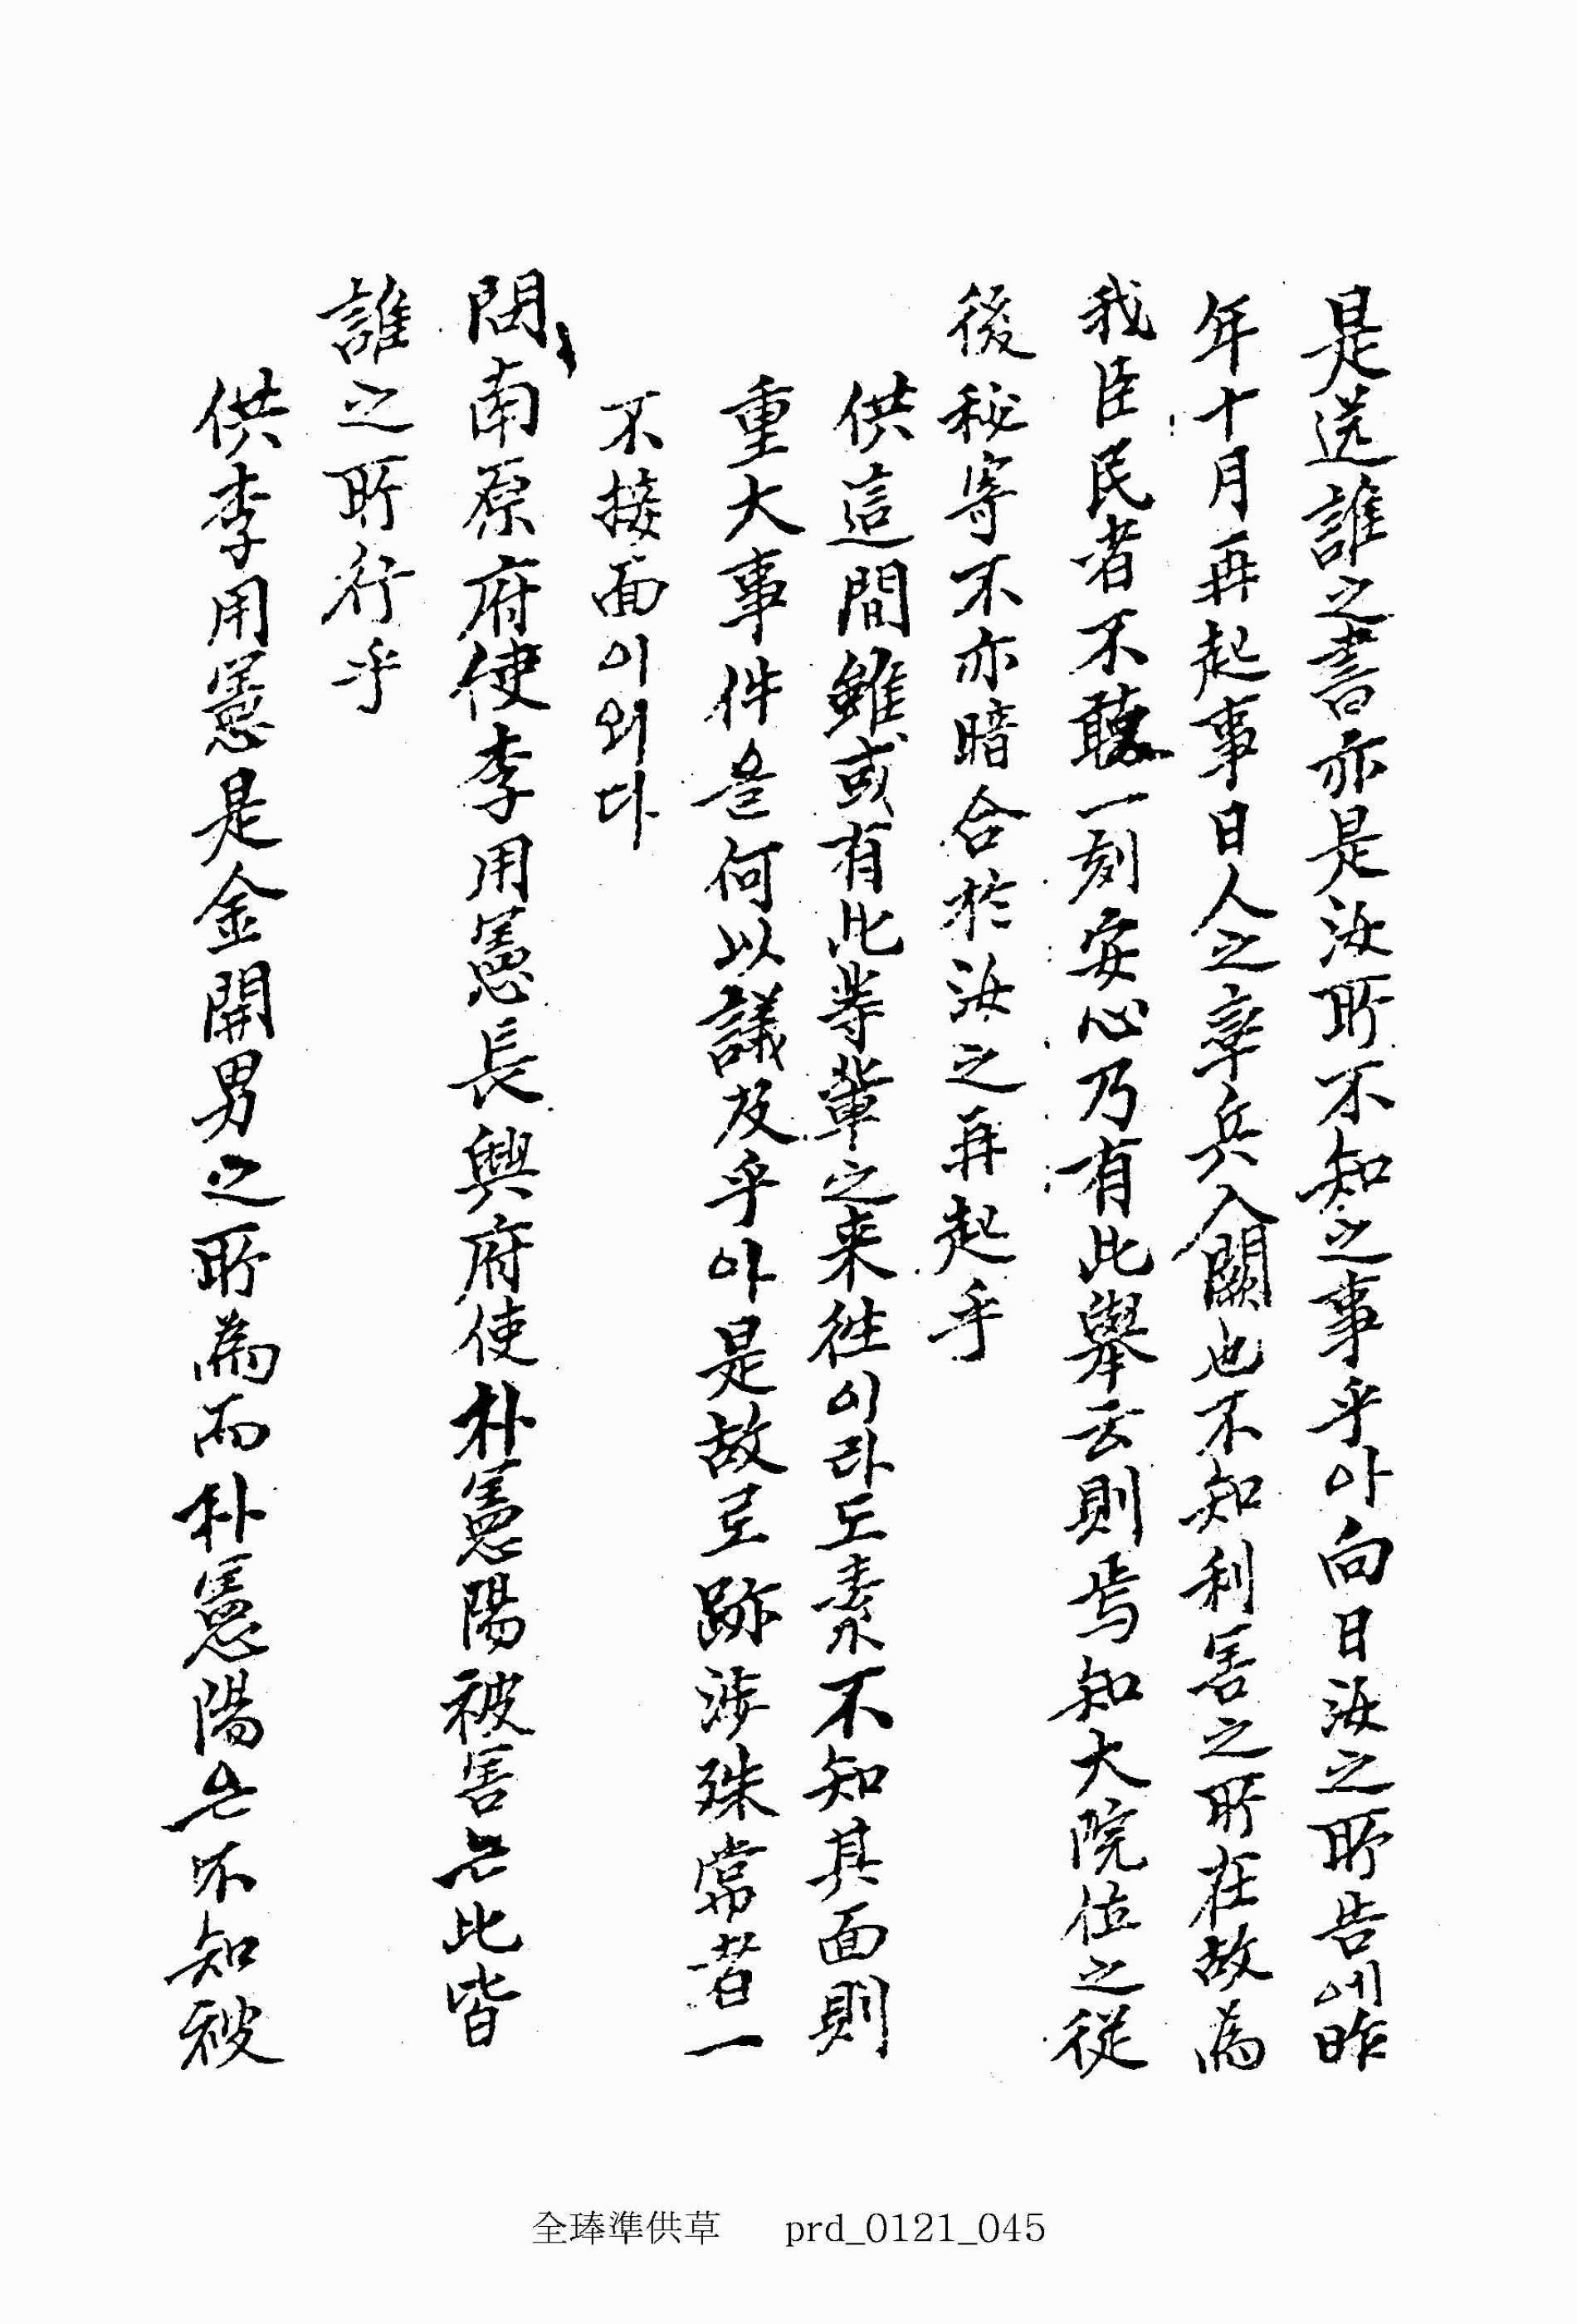 是送誰之書亦是汝所不知之事乎아向日汝之所告내昨
年十月再起事日人之率兵入闕也不知利害之所在故為
我臣民者不聽一刻安心乃有此擧云則焉知大院位之從
後秘寄不亦暗合於汝之再起乎
供這間雖或有此等輩之来徃이라도素不知其面則
重大事件을何以議及乎아是故로跡涉殊常者一
不接面이외다
問南原府使李用憲長興府使朴憲陽被害는此皆
誰之所行乎
供李用憲是金開男之所為而朴憲陽은不知被
全琫準供草 prd_0121_045